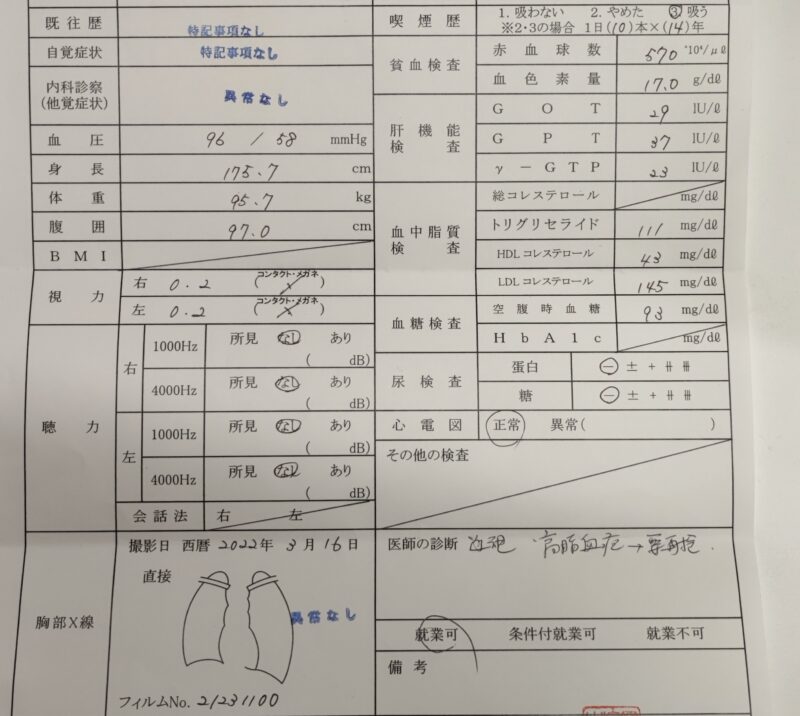 既往歴 特記事項なし
自覚症状 特記事項なし
内科診察
(他覚症状) 異常なし
血圧 96 / 58 mmHg
身長 175.7 cm
体重 95.7 kg
腹囲 97.0 cm
BMI
視力 右 0.2 (コンタクト・メガネ)
左 0.2 (コンタクト・メガネ)
聴力
右 1000Hz 所見 なし あり
( dB)
4000Hz 所見 なし あり
( dB)
左 1000Hz 所見 なし あり
( dB)
4000Hz 所見 なし あり
( dB)
会話法 右 左
胸部X線
撮影日 西暦 2022年 3月16日
直接
異常なし
フィルムNo. 21231100
喫煙歴 1. 吸わない 2. やめた 3 吸う
※2・3の場合 1日(10)本×(14)年
貧血検査 赤血球数 570 *10⁴/μℓ
血色素量 17.0 g/dℓ
肝機能検査 GOT 29 IU/ℓ
GPT 37 IU/ℓ
γ-GTP 23 IU/ℓ
血中脂質検査 総コレステロール mg/dℓ
トリグリセライド 111 mg/dℓ
HDLコレステロール 43 mg/dℓ
LDLコレステロール 145 mg/dℓ
血糖検査 空腹時血糖 93 mg/dℓ
HbA1c mg/dℓ
尿検査 蛋白 - ± + ⧺ ⧻
糖 - ± + ⧺ ⧻
心電図 正常 異常( )
その他の検査
医師の診断 高脂血症→要再検.
就業可 条件付就業可 就業不可
備考